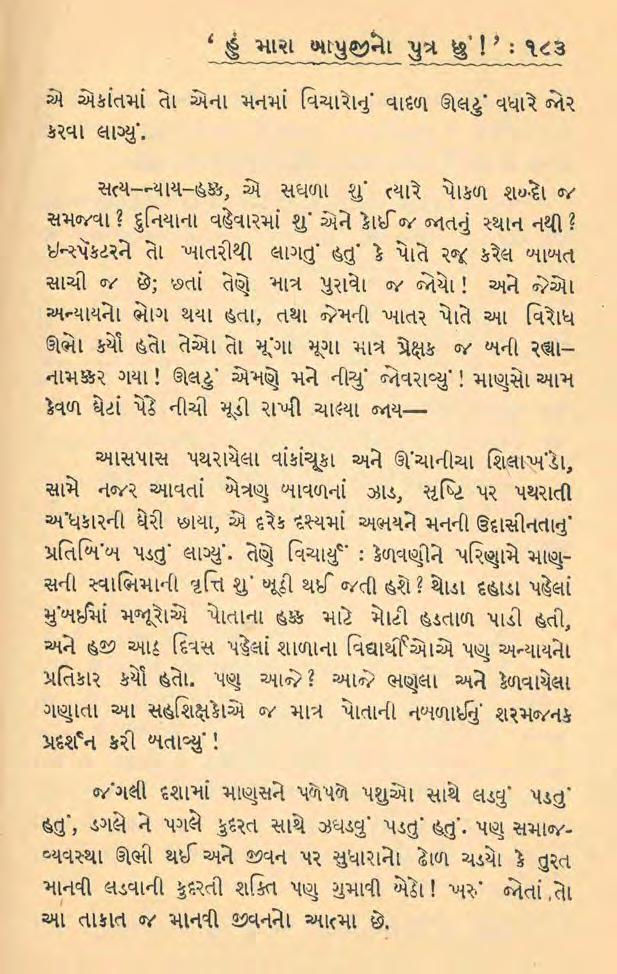 ‘ હું મારા બાપુજીનો પુત્ર છું ! ’ : ૧૮૩
એ એકાંતમાં તો એના મનમાં વિચારોનું વાદળ ઊલટું વધારે જોર
કરવા લાગ્યું.
સત્ય–ન્યાય–હક્ક, એ સઘળા શું ત્યારે પોકળ શબ્દો જ
સમજવા ? દુનિયાના વહેવારમાં શું એને કોઈ જ જાતનું સ્થાન નથી ?
ઇન્સ્પૅકટરને તો ખાતરીથી લાગતું હતું કે પોતે રજૂ કરેલ બાબત
સાચી જ છે; છતાં તેણે માત્ર પુરાવો જ જોયો ! અને જેઓ
અન્યાયનો ભોગ થયા હતા, તથા જેમની ખાતર પોતે આ વિરોધ
ઊભો કર્યો હતો તેઓ તો મૂંગા મૂગા માત્ર પ્રેક્ષક જ બની રહ્યા–
નામક્કર ગયા ! ઊલટું એમણે મને નીચું જોવરાવ્યું ! માણસો આમ
કેવળ ઘેટાં પેઠે નીચી મૂડી રાખી ચાલ્યા જાય—
આસપાસ પથરાયેલા વાંકાંચૂકા અને ઊંચાનીચા શિલાખંડો,
સામે નજર આવતાં બેત્રણ બાવળનાં ઝાડ, સૃષ્ટિ પર પથરાતી
અંધકારની ઘેરી છાયા, એ દરેક દૃશ્યમાં અભયને મનની ઉદાસીનતાનું
પ્રતિબિંબ પડતું લાગ્યું. તેણે વિચાર્યું : કેળવણીને પરિણામે માણ-
સની સ્વાભિમાની વૃત્તિ શું બૂઠી થઈ જતી હશે ? થોડા દહાડા પહેલાં
મુંબઈમાં મજૂરોએ પોતાના હક્ક માટે મોટી હડતાળ પાડી હતી,
અને હજી આઠ દિવસ પહેલાં શાળાના વિદ્યાર્થીઓએ પણ અન્યાયનો
પ્રતિકાર કર્યો હતો. પણ આજે ? આજે ભણેલા અને કેળવાયેલા
ગણાતા આ સહશિક્ષકોએ જ માત્ર પોતાની નબળાઈનું શરમજનક
પ્રદર્શન કરી બતાવ્યું !
જંગલી દશામાં માણસને પળેપળે પશુઓ સાથે લડવું પડતું
હતું, ડગલે ને પગલે કુદરત સાથે ઝઘડવું પડતું હતું. પણ સમાજ-
વ્યવસ્થા ઊભી થઈ અને જીવન પર સુધારાનો ઢોળ ચડયો કે તુરત
માનવી લડવાની કુદરતી શક્તિ પણ ગુમાવી બેઠો ! ખરું જોતાં તો
આ તાકાત જ માનવી જીવનનો આત્મા છે.